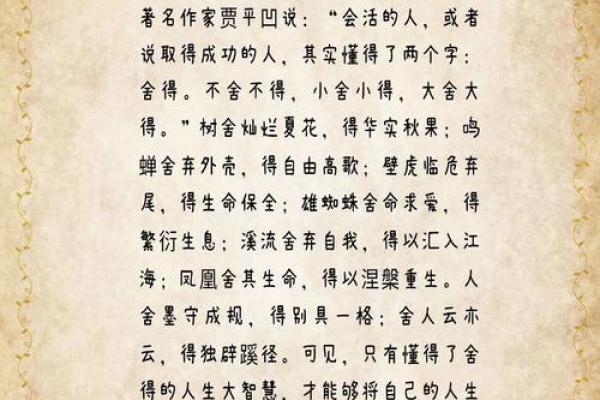 著名作家贾平凹说：“会活的人，或者
说取得成功的人，其实懂得了两个字：
舍得。不舍不得，小舍小得，大舍大
得。”树舍灿烂夏花，得华实秋果；鸣
蝉舍弃外壳，得自由高歌；壁虎临危弃
尾，得生命保全；雄蜘蛛舍命求爱，得
繁衍生息；溪流舍弃自我，得以汇入江
海；凤凰舍其生命，得以涅槃重生。人
舍墨守成规，得别具一格；舍人云亦
云，得独辟蹊径。可见，只有懂得了舍
得的人生大智慧，才能够将自己的人生